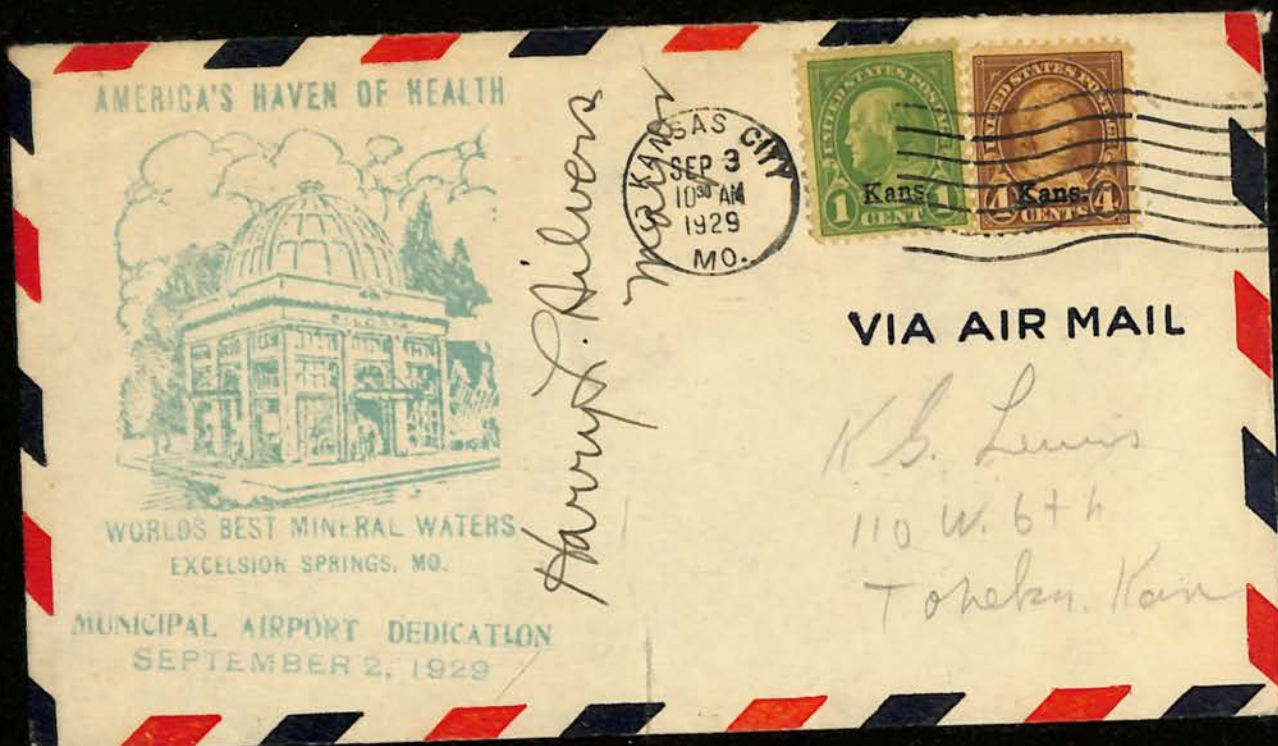 AMERICA'S HAVEN OF HEALTH
WORLDS BEST MINERAL WATERS
EXCELSIOR SPRINGS, MO.
MUNICIPAL AIRPORT DEDICATION
SEPTEMBER 2, 1929
Harry L. Hilvers
Mayor
KANSAS CITY
SEP 3
10 30 AM
1929
MO.
UNITED STATES POSTAGE
Kans.
1 CENT 1
UNITED STATES POSTAGE
Kans.
4 CENTS 4
VIA AIR MAIL
K G. Lewis
110 W. 6th
Topeka, Kan